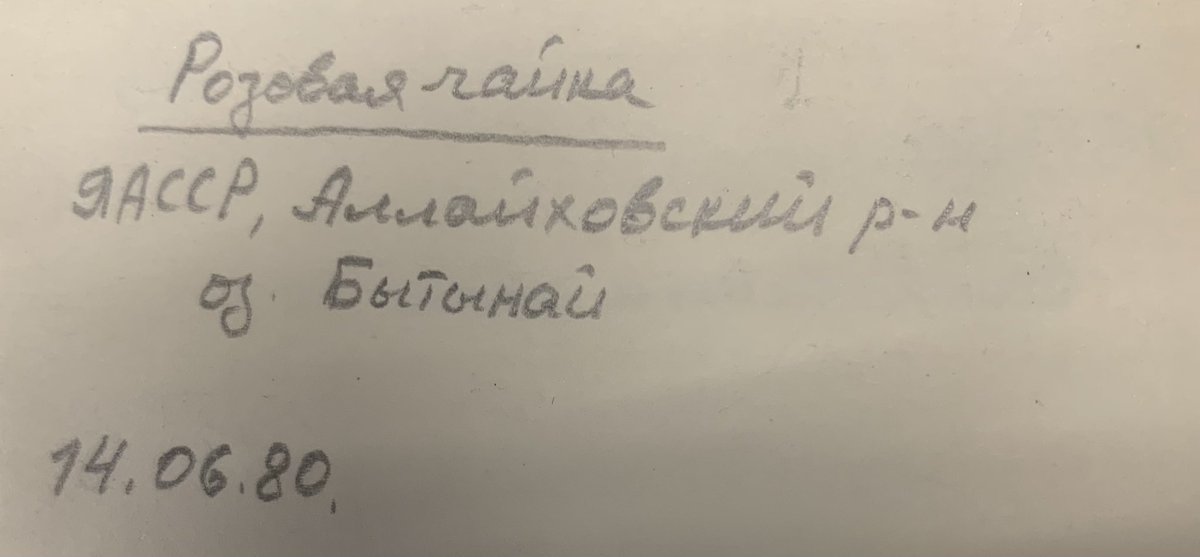 Розовая чайка
ЯАССР, Аллайховский р-н
оз. Бытынай
14.06.80.